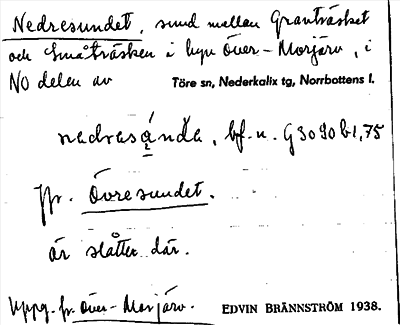 Nedresundet, sund mellan Granträsket
och Småträsken i byn Över-Morjärv, i
NO delen av Töre sn, Nederkalix tg, Norrbottens l.
nedrasánda, bf. n. G3090b1,75
Jfr. Övresundet.
är slåtter där.
Uppg. fr. Över-Morjärv. EDVIN BRÄNNSTRÖM 1938.